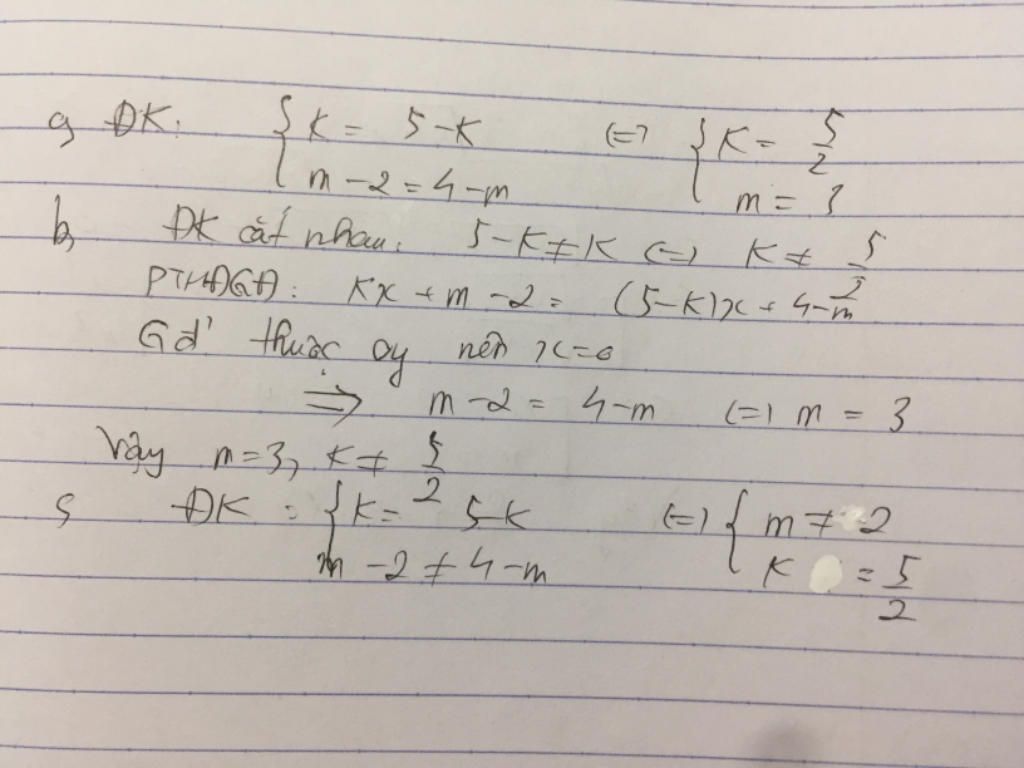 a, ĐK: { K = 5-K (=) { K = 5/2
m - 2 = 4 - m m = 3
b, ĐK cắt nhau: 5-K ≠ K (=) K ≠ 5/2
PTHĐGĐ: Kx + m - 2 = (5-K)x + 4-m
Gđ' thuộc oy nên x=0
=> m-2 = 4-m (=) m = 3
Vậy m=3, K ≠ 5/2
c, ĐK: { K = 5-K (=) { m ≠ 2
m - 2 ≠ 4-m K = 5/2